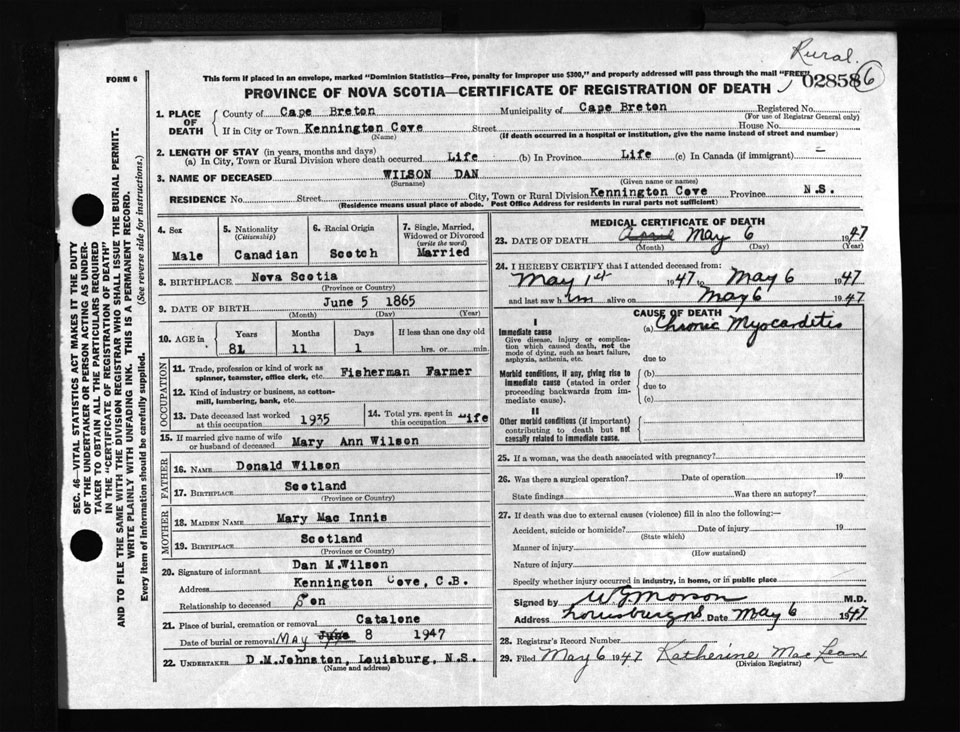 Rural.
FORM 6
This form if placed in an envelope, marked "Dominion Statistics—Free, penalty for improper use $300," and properly addressed will pass through the mail "FREE"
02858 6
PROVINCE OF NOVA SCOTIA—CERTIFICATE OF REGISTRATION OF DEATH
SEC. 46—VITAL STATISTICS ACT MAKES IT THE DUTY
OF THE UNDERTAKER OR PERSON ACTING AS UNDER-
TAKER TO OBTAIN ALL THE PARTICULARS REQUIRED
IN THE "CERTIFICATE OF REGISTRATION OF DEATH"
AND TO FILE THE SAME WITH THE DIVISION REGISTRAR WHO SHALL ISSUE THE BURIAL PERMIT.
WRITE PLAINLY WITH UNFADING INK. THIS IS A PERMANENT RECORD.
Every item of information should be carefully supplied. (See reverse side for instructions.)
1. PLACE OF DEATH County of Cape Breton Municipality of Cape Breton Registered No.
(For use of Registrar General only)
If in City or Town Kennington Cove Street House No.
(Name) (If death occurred in a hospital or institution, give the name instead of street and number)
2. LENGTH OF STAY (in years, months and days)
(a) In City, Town or Rural Division where death occurred Life (b) In Province Life (c) In Canada (if immigrant) —
3. NAME OF DECEASED WILSON DAN
(Surname) (Given name or names)
RESIDENCE No. Street City, Town or Rural Division Kennington Cove Province N.S.
(Residence means usual place of abode. Post Office Address for residents in rural parts not sufficient)
4. Sex 5. Nationality 6. Racial Origin 7. Single, Married,
(Citizenship) Widowed or Divorced
(write the word)
Male Canadian Scotch Married
8. BIRTHPLACE Nova Scotia
(Province or Country)
9. DATE OF BIRTH June 5 1865
(Month) (Day) (Year)
10. AGE in Years Months Days If less than one day old
81 11 1 hrs. or min.
OCCUPATION
11. Trade, profession or kind of work as
spinner, teamster, office clerk, etc. Fisherman Farmer
12. Kind of industry or business, as cotton-
mill, lumbering, bank, etc.
13. Date deceased last worked
at this occupation 1935
14. Total yrs. spent in
this occupation Life
15. If married give name of wife
or husband of deceased Mary Ann Wilson
FATHER
16. NAME Donald Wilson
17. BIRTHPLACE Scotland
(Province or Country)
MOTHER
18. MAIDEN NAME Mary Mac Innis
19. BIRTHPLACE Scotland
(Province or Country)
20. Signature of informant Dan M.Wilson
Address Kennington Cove, C.B.
Relationship to deceased Son
21. Place of burial, cremation or removal Catalone
Date of burial or removal MAY June 8 1947
22. UNDERTAKER D.M.Johnston, Louisburg, N.S.
(Name and address)
MEDICAL CERTIFICATE OF DEATH
23. DATE OF DEATH May 6 1947
(Month) (Day) (Year)
24. I HEREBY CERTIFY that I attended deceased from:
May 1st 1947 to May 6 1947
and last saw him alive on May 6 1947
CAUSE OF DEATH
I
Immediate cause
Give disease, injury or complica-
tion which caused death, not the
mode of dying, such as heart failure,
asphyxia, asthenia, etc.
(a) Chronic Myocarditis
due to
Morbid conditions, if any, giving rise to
immediate cause (stated in order
proceeding backwards from im-
mediate cause).
(b)
due to
(c)
II
Other morbid conditions (if important)
contributing to death but not
causally related to immediate cause.
25. If a woman, was the death associated with pregnancy?
26. Was there a surgical operation? Date of operation 19
State findings Was there an autopsy?
27. If death was due to external causes (violence) fill in also the following:—
Accident, suicide or homicide? Date of injury 19
(State which)
Manner of injury
(How sustained)
Nature of injury
Specify whether injury occurred in industry, in home, or in public place
Signed by W G Morson M.D.
Address Louisburg NS. Date May 6 1947
28. Registrar's Record Number
29. Filed May 6 1947 Katherine MacLean
(Division Registrar)